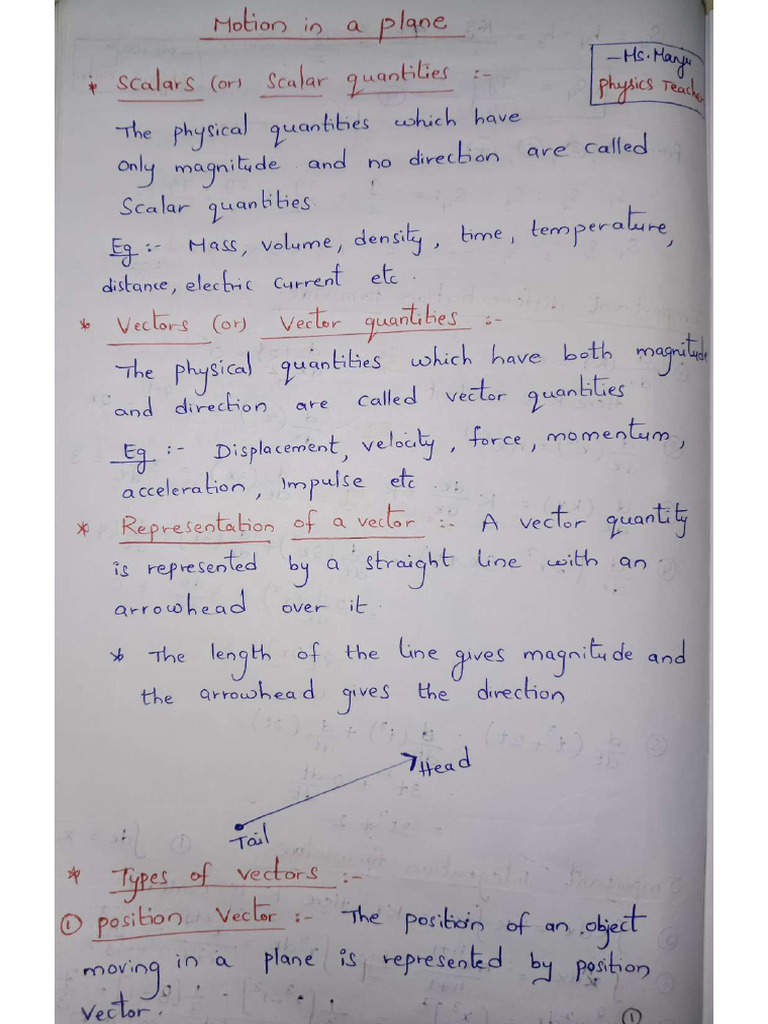 Motion in a plane
- Ms. Manju
Physics Teacher
* Scalars (or) Scalar quantities :-
The physical quantities which have
only magnitude and no direction are called
Scalar quantities
Eg :- Mass, volume, density, time, temperature,
distance, electric current etc.
* Vectors (or) Vector quantities :-
The physical quantities which have both magnitude
and direction are called vector quantities
Eg :- Displacement, velocity, force, momentum,
acceleration, Impulse etc.
* Representation of a vector :- A vector quantity
is represented by a straight line with an
arrowhead over it.
* The length of the line gives magnitude and
the arrowhead gives the direction
Head
Tail
* Types of vectors :-
① position Vector :- The position of an object
moving in a plane is represented by position
vector.
①